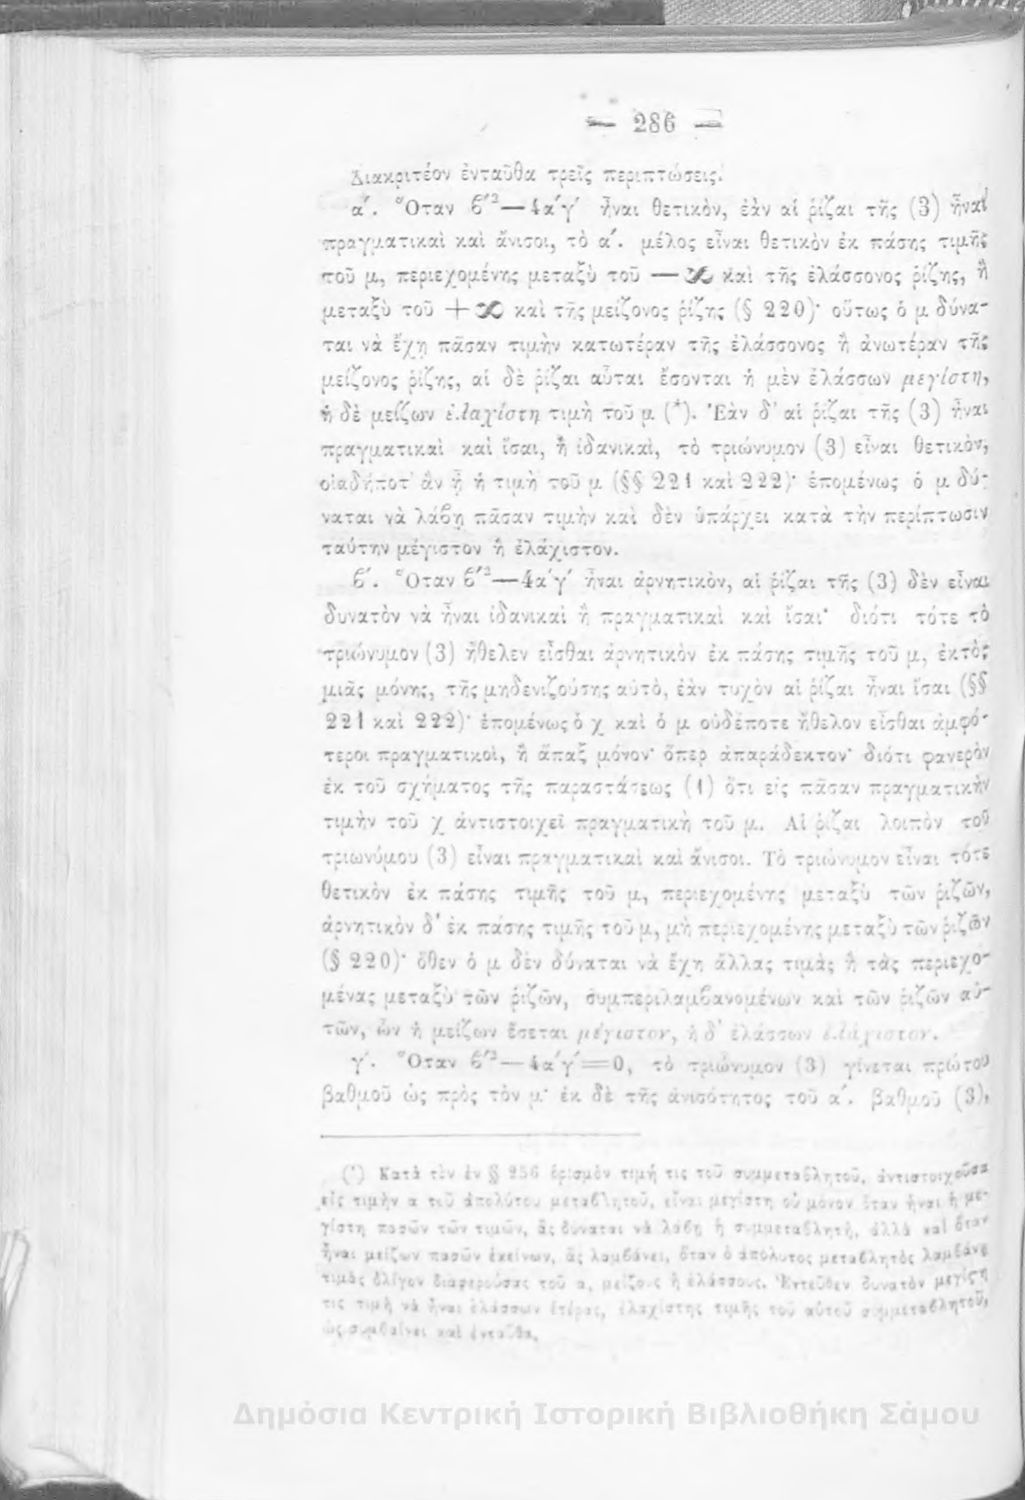 — 286 —
Διακριτέον ἐνταῦθα τρεῖς περιπτώσεις.
α΄. Ὅταν ϐ′²—4α′γ′ ᾖναι θετικὸν, ἐὰν αἱ ῥίζαι τῆς (3) ᾖναι
πραγματικαὶ καὶ ἄνισοι, τὸ α΄. μέλος εἶναι θετικὸν ἐκ πάσης τιμῆς
τοῦ μ, περιεχομένης μεταξὺ τοῦ —∞ καὶ τῆς ἐλάσσονος ῥίζης, ἢ
μεταξὺ τοῦ +∞ καὶ τῆς μείζονος ῥίζης (§ 220)· οὕτως ὁ μ δύνα-
ται νὰ ἔχῃ πᾶσαν τιμὴν κατωτέραν τῆς ἐλάσσονος ἢ ἀνωτέραν τῆς
μείζονος ῥίζης, αἱ δὲ ῥίζαι αὗται ἔσονται ἡ μὲν ἐλάσσων μεγίστη,
ἡ δὲ μείζων ἐλαχίστη τιμὴ τοῦ μ (*). Ἐὰν δ' αἱ ῥίζαι τῆς (3) ᾖναι
πραγματικαὶ καὶ ἴσαι, ἢ ἰδανικαὶ, τὸ τριώνυμον (3) εἶναι θετικὸν,
οἱαδήποτ' ἂν ᾖ ἡ τιμὴ τοῦ μ (§§ 221 καὶ 222)· ἑπομένως ὁ μ δύ-
ναται νὰ λάϐῃ πᾶσαν τιμὴν καὶ δὲν ὑπάρχει κατὰ τὴν περίπτωσιν
ταύτην μέγιστον ἢ ἐλάχιστον.
ϐ΄. Ὅταν ϐ′²—4α′γ′ ᾖναι ἀρνητικὸν, αἱ ῥίζαι τῆς (3) δὲν εἶναι
δυνατὸν νὰ ᾖναι ἰδανικαὶ ἢ πραγματικαὶ καὶ ἴσαι· διότι τότε τὸ
τριώνυμον (3) ἤθελεν εἶσθαι ἀρνητικὸν ἐκ πάσης τιμῆς τοῦ μ, ἐκτὸς
μιᾶς μόνης, τῆς μηδενιζούσης αὐτὸ, ἐὰν τυχὸν αἱ ῥίζαι ᾖναι ἴσαι (§§
221 καὶ 222)· ἑπομένως ὁ χ καὶ ὁ μ οὐδέποτε ἤθελον εἶσθαι ἀμφό-
τεροι πραγματικοὶ, ἢ ἅπαξ μόνον· ὅπερ ἀπαράδεκτον· διότι φανερὸν
ἐκ τοῦ σχήματος τῆς παραστάσεως (1) ὅτι εἰς πᾶσαν πραγματικὴν
τιμὴν τοῦ χ ἀντιστοιχεῖ πραγματικὴ τοῦ μ. Αἱ ῥίζαι λοιπὸν τοῦ
τριωνύμου (3) εἶναι πραγματικαὶ καὶ ἄνισοι. Τὸ τριώνυμον εἶναι τότε
θετικὸν ἐκ πάσης τιμῆς τοῦ μ, περιεχομένης μεταξὺ τῶν ῥιζῶν,
ἀρνητικὸν δ' ἐκ πάσης τιμῆς τοῦ μ, μὴ περιεχομένης μεταξὺ τῶν ῥιζῶν
(§ 220)· ὅθεν ὁ μ δὲν δύναται νὰ ἔχῃ ἄλλας τιμὰς ἢ τὰς περιεχο-
μένας μεταξὺ τῶν ῥιζῶν, συμπεριλαμϐανομένων καὶ τῶν ῥιζῶν αὐ-
τῶν, ὧν ἡ μείζων ἔσεται μέγιστον, ἡ δ' ἐλάσσων ἐλάχιστον.
γ΄. Ὅταν ϐ′²—4α′γ′=0, τὸ τριώνυμον (3) γίνεται πρώτου
βαθμοῦ ὡς πρὸς τὸν μ· ἐκ δὲ τῆς ἀνισότητος τοῦ α΄. βαθμοῦ (3),
(*) Κατὰ τὸν ἐν § 256 ὁρισμὸν τιμή τις τοῦ συμμεταϐλητοῦ, ἀντιστοιχοῦσα
εἰς τιμὴν α τοῦ ἀπολύτου μεταϐλητοῦ, εἶναι μεγίστη οὐ μόνον ὅταν ᾖναι ἡ με-
γίστη πασῶν τῶν τιμῶν, ἃς δύναται νὰ λάϐῃ ἡ συμμεταϐλητὴ, ἀλλὰ καὶ ὅταν
ᾖναι μείζων πασῶν ἐκείνων, ἃς λαμϐάνει, ὅταν ὁ ἀπόλυτος μεταϐλητὸς λαμϐάνῃ
τιμὰς ὀλίγον διαφερούσας τοῦ α, μείζους ἢ ἐλάσσους. Ἐντεῦθεν δυνατὸν μεγίστη
τις τιμὴ νὰ ᾖναι ἐλάσσων ἑτέρας, ἐλαχίστης τιμῆς τοῦ αὐτοῦ συμμεταϐλητοῦ,
ὡς συμϐαίνει καὶ ἐνταῦθα.
Δημόσια Κεντρική Ιστορική Βιβλιοθήκη Σάμου